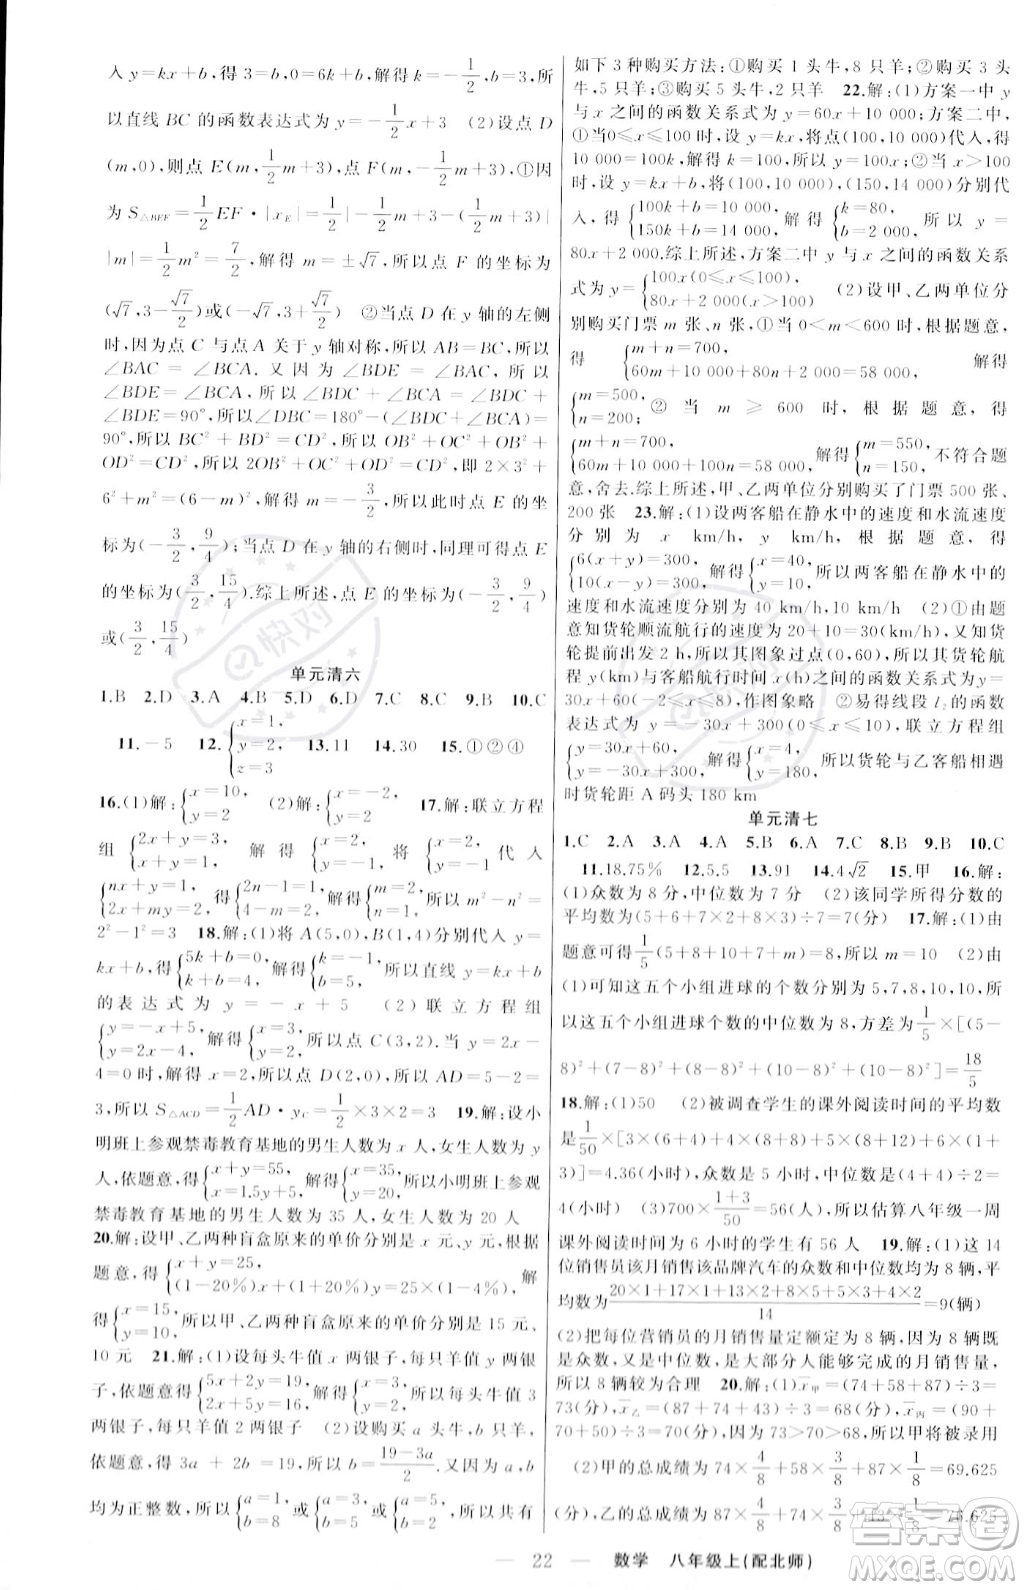 入 y=kx+b,得 3=b,0=6k+b,解得 k=-1/2,b=3,所
以直线 BC 的函数表达式为 y=-1/2x+3 (2)设点 D
(m,0),则点 E(m,1/2m+3),点 F(m,-1/2m+3),①因
为 S△BEF=1/2EF·|xE|=1/2|-1/2m+3-(1/2m+3)|
|m|=1/2m²=7/2,解得 m=±√7,所以点 F 的坐标为
(√7,3-√7/2)或(-√7,3+√7/2) ②当点 D 在 y 轴的左侧
时,因为点 C 与点 A 关于 y 轴对称,所以 AB=BC,所以
∠BAC=∠BCA.又因为∠BDE=∠BAC,所以
∠BDE=∠BCA,所以∠BDC+∠BCA=∠BDC+
∠BDE=90°,所以∠DBC=180°-(∠BDC+∠BCA)=
90°,所以 BC²+BD²=CD²,所以 OB²+OC²+OB²+
OD²=CD²,所以 2OB²+OC²+OD²=CD²,即 2×3²+
6²+m²=(6-m)²,解得 m=-3/2,所以此时点 E 的坐
标为(-3/2,9/4);当点 D 在 y 轴的右侧时,同理可得点 E
的坐标为(3/2,15/4).综上所述,点 E 的坐标为(-3/2,9/4)
或(3/2,15/4)
单元清六
1.B 2.D 3.A 4.B 5.D 6.D 7.C 8.C 9.B 10.C
11.-5 12.{x=1,y=2,z=3 13.11 14.30 15.①②④
16.(1)解:{x=10,y=2 (2)解:{x=2,y=2 17.解:联立方程
组{2x+y=3,3x-2y=1 解得{x=1,y=1 将{x=1,y=1 代入
{nx+y=1,2x+my=2 得{2n-1=1,4-m=2 解得{m=2,n=1 所以 m²-n²=
2²-1²=3 18.解:(1)将 A(5,0),B(1,4)分别代入 y=
kx+b,得{5k+b=0,k+b=4 解得{k=-1,b=5 所以直线 y=kx+b
的表达式为 y=-x+5 (2)联立方程组
{y=-x+5,y=2x-4, 解得{x=3,y=2, 所以点 C(3,2).当 y=2x-
4=0时,解得 x=2,所以点 D(2,0),所以 AD=5-2=
3,所以 S△ACD=1/2AD·yC=1/2×3×2=3 19.解:设小
明班上参观禁毒教育基地的男生人数为 x 人,女生人数为 y
人,依题意,得{x+y=55,x=1.5y+5 解得{x=35,y=20 所以小明班上参观
禁毒教育基地的男生人数为 35 人,女生人数为 20 人
20.解:设甲、乙两种盲盒原来的单价分别是 x元、y元,根据
题意,得{x+y=25,(1-20%)x+(1-10%)y=21, 解
得{x=15,y=10, 所以甲、乙两种盲盒原来的单价分别是 15 元、
10 元 21.解:(1)设每头牛值 x 两银子,每只羊值 y 两银
子,根据题意,得{5x+2y=19,2x+5y=16, 解得{x=3,y=2, 所以每头牛值 3
两银子,每只羊值 2 两银子 (2)设购买 a 头牛,b 只羊,
依题意,得 3a+2b=19,所以 b=(19-3a)/2.又因为 a,b
均为正整数,所以{a=1,b=8 或{a=3,b=5 或{a=5,b=2, 所以共有
如下 3 种购买方法:①购买 1 头牛,8 只羊;②购买 3 头
牛,5 只羊;③购买 5 头牛,2 只羊 22.解:(1)方案一中 y
与 x 之间的函数关系式为 y=60x+10 000;方案二中,
①当0≤x≤100时,设 y=kx,将点(100,10 000)代入,得
10 000=100k,解得 k=100,所以 y=100x;②当 x>100
时,设 y=kx+b,将(100,10 000),(150,14 000)分别代
入,得{100k+b=10 000,150k+b=14 000, 解得{k=80,b=2 000, 所以 y=
80x+2 000.综上所述,方案二中 y 与 x 之间的函数关系
式为 y={100x(0≤x≤100),80x+2 000(x>100) (2)设甲、乙两单位分
别购买门票 m 张、n 张,①当 0<m<600 时,根据题意,
得{m+n=700,60m+10 000+100n=58 000, 解得
{m=500,n=200; ②当 m≥600 时,根据题意,得
{m+n=700,60m+10 000+100n=58 000, 解得{m=550,n=150, 不符合题
意,舍去.综上所述,甲、乙两单位分别购买了门票 500 张、
200 张 23.解:(1)设两客船在静水中的速度和水流速度
分别为 x km/h,y km/h,根据题意,得
{6(x+y)=300,10(x-y)=300, 解得{x=40,y=10, 所以两客船在静水中的
速度和水流速度分别为 40 km/h,10 km/h (2)①由题
意知货轮顺流航行的速度为20+10=30(km/h),又知货
轮提前出发 2 h,所以其图象过点(0,60),所以其货轮航
行路程 y 与客船航行时间 x 之间的函数关系式为 y=
30x+60(0≤x≤8),作图象略 ②易得线段 l₂ 的函数
表达式为 y=-30x+300(0≤x≤10),联立方程组
{y=30x+60,y=-30x+300, 解得{x=4,y=180, 所以货轮与乙客船相遇
时货轮距 A 码头 180 km
单元清七
1.C 2.A 3.A 4.A 5.B 6.A 7.C 8.B 9.B 10.C
11.18.75% 12.5.5 13.91 14.4√2 15.甲 16.解:
(1)众数为 8 分,中位数为 7 分 (2)该同学所得分数的
平均数为(5+6+7×2+8×3)÷7=7(分) 17.解:(1)由
题意可得1/5(5+8+10+7+m)=8,所以 m=10 (2)由
(1)可知这五个小组进球的个数分别为 5,7,8,10,10,所
以这五个小组进球个数的中位数为 8,方差为1/5×[(5-
8)²+(7-8)²+(8-8)²+(10-8)²+(10-8)²]=18/5
18.解:(1)50 (2)被调查学生的课外阅读时间的平均数
3)]=4.36(小时),众数是 5小时,中位数是(4+4)÷2=
4(小时) (3)700×(1+3)/50=56(人),所以估算八年级一周
课外阅读时间为 2 小时的学生有 56 人 19.解:(1)这 14
位销售员该月销售该品牌汽车的众数和中位数为 8 辆,平
均数为(20×1+17×1+13×1+8×5+5×3+4×2)/14=9(辆)
(2)把每位营销员的月销售量定额定为 8 辆较为合理,因
为 8 既是众数,又是中位数,是大部分人能够完成的月销售量,
所以 8 辆较为合理 20.解:(1)x̄甲=(74+58+87)÷3=
73(分),x̄乙=(87+74+43)÷3=68(分),x̄丙=(90+
70+50)÷3=70(分),因为73>70>68,所以甲将被录用
(2)甲的总成绩为 74×4/8+58×3/8+87×1/8=69.625
(分),乙的总成绩为 87×4/8+74×3/8+43×1/8=76.625
22 数学 八年级上(配北师)
快对
答案